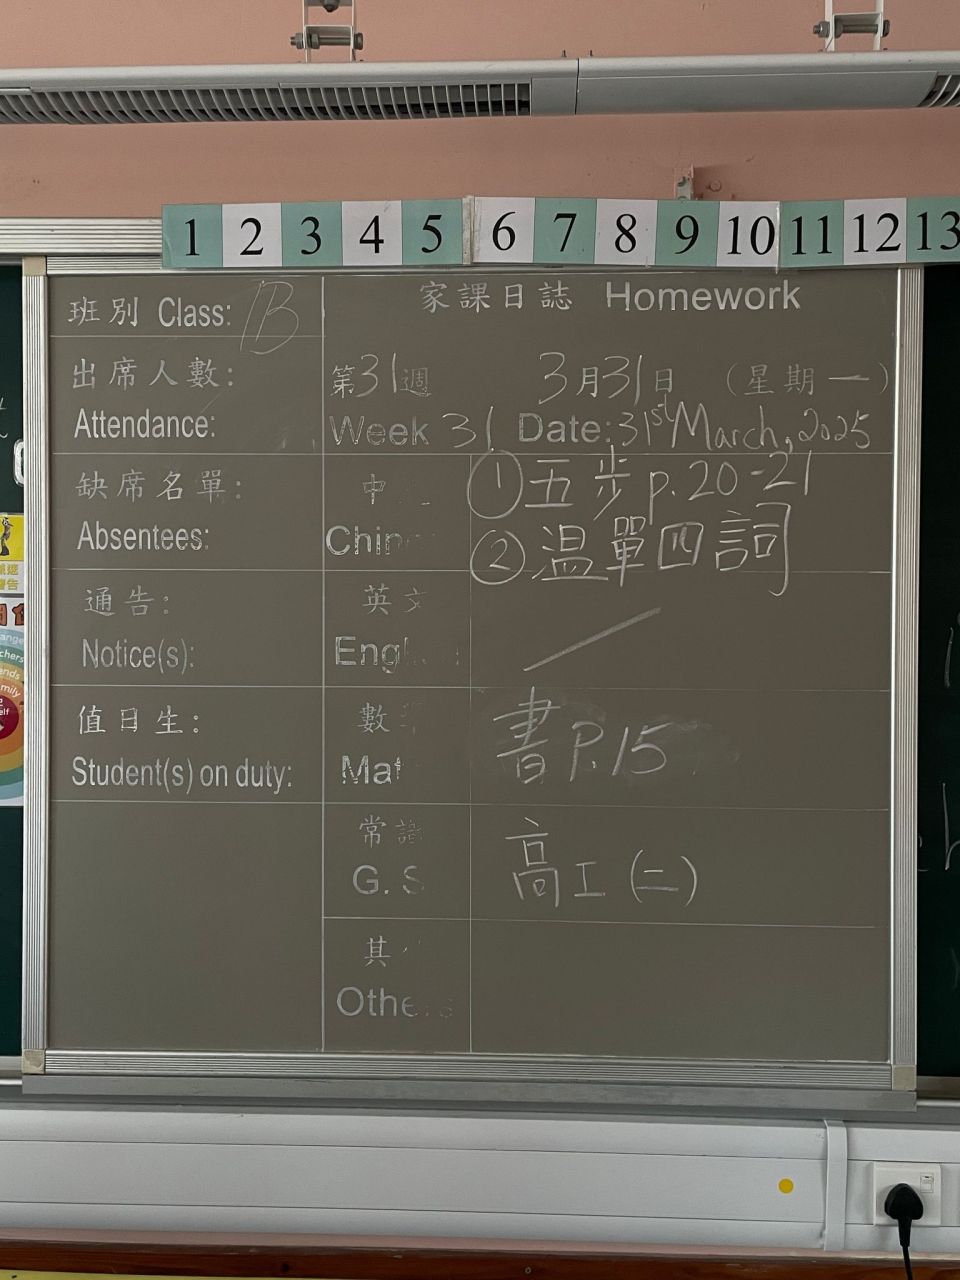 1 2 3 4 5 6 7 8 9 10 11 12 13
班別 Class: 1B
家課日誌 Homework
出席人數:
Attendance:
第31週 3月31日 (星期一)
Week 31 Date: 31st March, 2025
缺席名單:
Absentees:
中
Chin
① 五步 p.20-21
② 温單四詞
通告:
Notice(s):
英文
Eng
值日生:
Student(s) on duty:
數
Mat
書 P.15
常識
G. S
高工(二)
其
Others